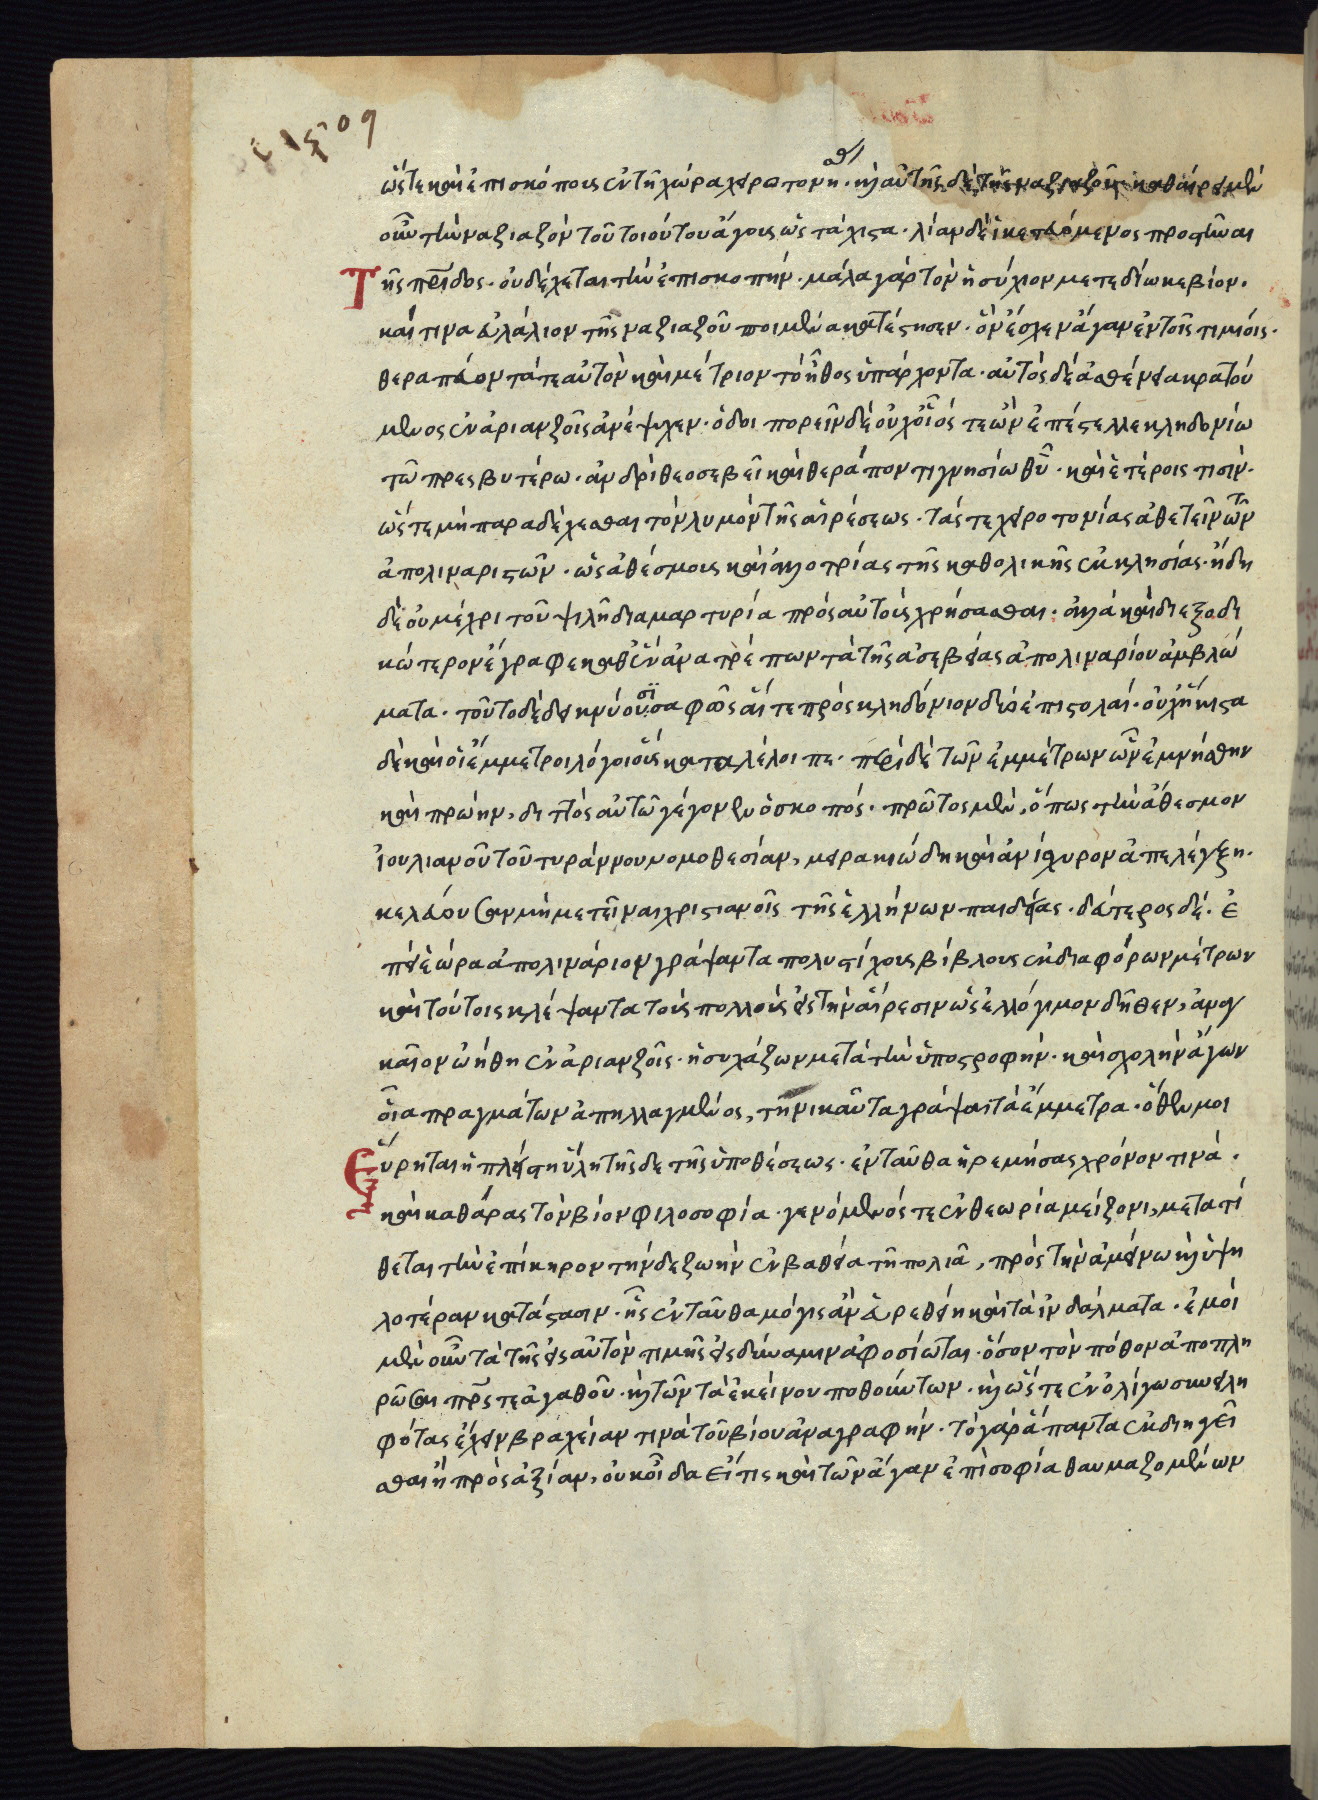 ὥστε καὶ ἐπισκόπους ἐν τῇ χώρα χειροτονη. καὶ αὐτῆς δὲ τῆς ναζιαζοῦ καθαίρει μὲν
οὖν τὴν ναζιαζὸν τοῦ τοιούτου ἄγους ὡς τάχιστα. λίαν δὲ ἱκετευόμενος προστῆναι
τῆσ πατρίδος. οὐ δέχεται τὴν ἐπισκοπήν. μάλα γὰρ τὸν ἡσύχιον μετεδίωκε βίον.
καί τινα εὐλάλιον τῆς ναζιαζοῦ ποιμένα κατέστησεν. ὃν ἔσχεν ἄγαν ἐν τοῖς τιμίοις.
θεραπεύοντά τε αὐτὸν καὶ μέτριον τὸ ἦθος ὑπάρχοντα. αὐτὸς δὲ ἀσθενεία κρατού
μενος ἐν ἀριανζοῖς ἀνέψυχεν. ὁδοιπορεῖν δὲ οὐχ οἷός τε ὢν ἐπέστελλε κληδονίω
τῶ πρεσβυτέρω. ἀνδρὶ θεοσεβεῖ καὶ θεράποντι γνησίω θῦ. καὶ ἑτέροις τισίν.
ὥστε μὴ παραδέχεσθαι τὸν λυμὸν τῆς αἱρέσεως. τάς τε χειροτονίας ἀθετεῖν τῶν
ἀπολιναριστῶν. ὡς ἀθέσμους καὶ ἀλλοτρίας τῆς καθολικῆς ἐκκλησίας. ἤδη
δὲ οὐ μέχρι τοῦ ψιλῆ διαμαρτυρία πρὸς αὐτοὺς χρήσασθαι. ἀλλὰ καὶ διεξοδι
κώτερον ἔγραφε καθ' ἓν ἀνατρέπων τὰ τῆς ἀσεβείας ἀπολιναρίου ἀμβλώ
ματα. τοῦτο δὲ δεικνύουσι σαφῶς αἵ τε πρὸς κληδόνιον δύο ἐπιστολαί. οὐχ ἥκιστα
δὲ καὶ οἱ ἔμμετροι λόγοι οὓς καταλέλοιπε. περὶ δὲ τῶν ἐμμέτρων ὧν ἐμνήσθην
καὶ πρώην, διττὸς αὐτῶ γέγονεν ὁ σκοπός. πρῶτος μὲν, ὅπως τὴν ἄθεσμον
ἰουλιανοῦ τοῦ τυράννου νομοθεσίαν, μειρακιώδη καὶ ἀνίσχυρον ἀπελέγξη.
κελεύουσαν μὴ μετεῖναι χριστιανοῖς τῆς ἑλλήνων παιδείας. δεύτερος δέ. ἐ
πεὶ ἑώρα ἀπολινάριον γράψαντα πολυστίχους βίβλους ἐκ διαφόρων μέτρων
καὶ τούτοις κλέψαντα τοὺς πολλοὺς εἰς τὴν αἵρεσιν ὡς ἐλλόγιμον δῆθεν, ἀναγ
καῖον ὠήθη ἐν ἀριανζοῖς. ἡσυχάζων μετὰ τὴν ὑποστροφήν. καὶ σχολὴν ἄγων
οἷα πραγμάτων ἀπηλλαγμένος, τηνικαῦτα γράψαι τὰ ἔμμετρα. ὅθεν μοι
εὕρηται ἡ πλείστη ὕλη τῆσδε τῆς ὑποθέσεως. ἐνταῦθα ἠρεμήσας χρόνον τινά.
καὶ καθάρας τὸν βίον φιλοσοφία. γενόμενός τε ἐν θεωρία μείζονι, μετατί
θεται τὴν ἐπίκηρον τήνδε ζωὴν ἐν βαθεία τῆ πολιᾶ, πρὸς τὴν ἀμείνω καὶ ὑψη
λοτέραν κατάστασιν. ἧς ἐνταῦθα μόγις ἂν εὑρεθείη καὶ τὰ ἰνδάλματα. ἐμοὶ
μὲν οὖν τὰ τῆς εἰς αὐτὸν τιμῆς εἰς δύναμιν ἀφοσίωται. ὅσον τὸν πόθον ἀποπλη
ρῶσαι πρς τε ἀγαθοῦ. καὶ τῶν τὰ ἐκείνου ποθούντων. καὶ ὥστε ἐν ὀλίγω συνειλη
φότας ἔχειν βραχεῖαν τινὰ τοῦ βίου ἀναγραφήν. τὸ γὰρ ἅπαντα ἐκδιηγεῖ
σθαι ἢ πρὸς ἀξίαν, οὐκ οἶδα εἴ τις καὶ τῶν ἄγαν ἐπὶ σοφία θαυμαζομένων